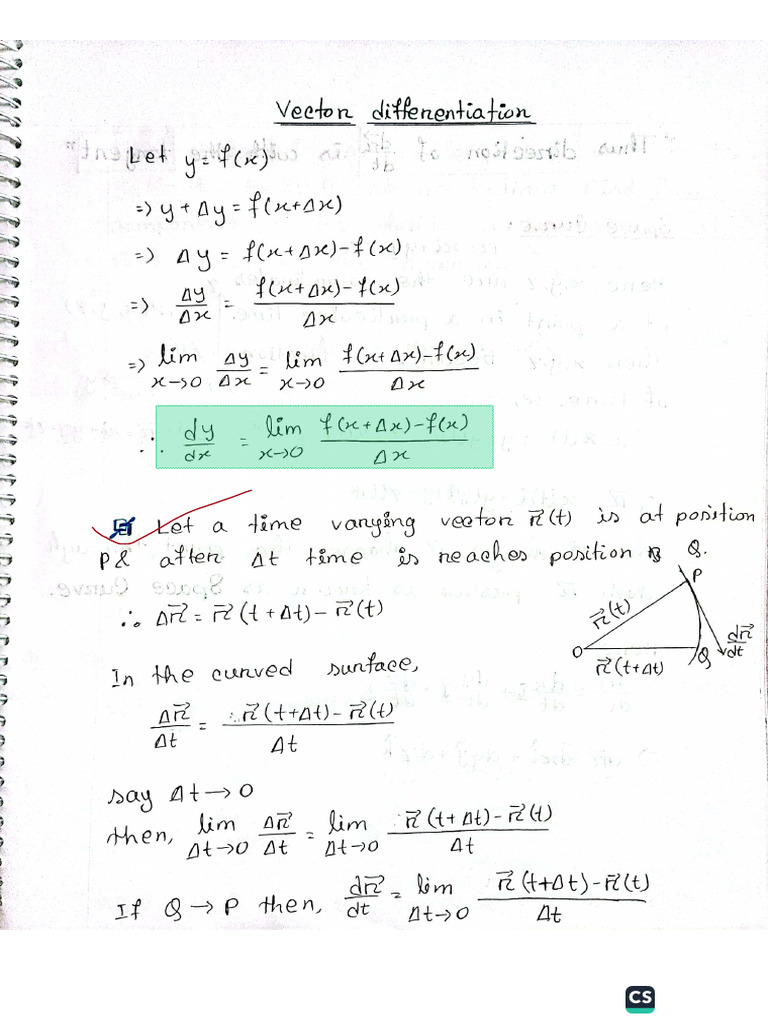 Vector differentiation
Let y = f(x)
=> y + Δy = f(x+Δx)
=> Δy = f(x+Δx) - f(x)
=> Δy/Δx = f(x+Δx) - f(x)/Δx
=> lim x→0 Δy/Δx = lim x→0 f(x+Δx) - f(x)/Δx
∴ dy/dx = lim x→0 f(x+Δx) - f(x)/Δx
Let a time varying vector r⃗(t) is at position
P & after Δt time is reaches position Q.
∴ Δr⃗ = r⃗(t+Δt) - r⃗(t)
P
r⃗(t)
O
r⃗(t+Δt)
Q
dr⃗/dt
In the curved surface,
Δr⃗/Δt = r⃗(t+Δt) - r⃗(t)/Δt
say Δt→0
then, lim Δt→0 Δr⃗/Δt = lim Δt→0 r⃗(t+Δt) - r⃗(t)/Δt
If Q→P then, dr⃗/dt = lim Δt→0 r⃗(t+Δt) - r⃗(t)/Δt
CS